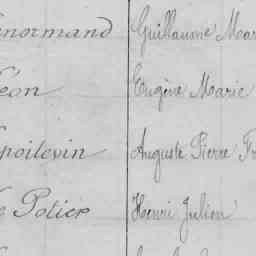 enormand Guillaume Mar
éon Eugène Marie
poitevin Auguste Pierre Fr
e Potier Henri Julien